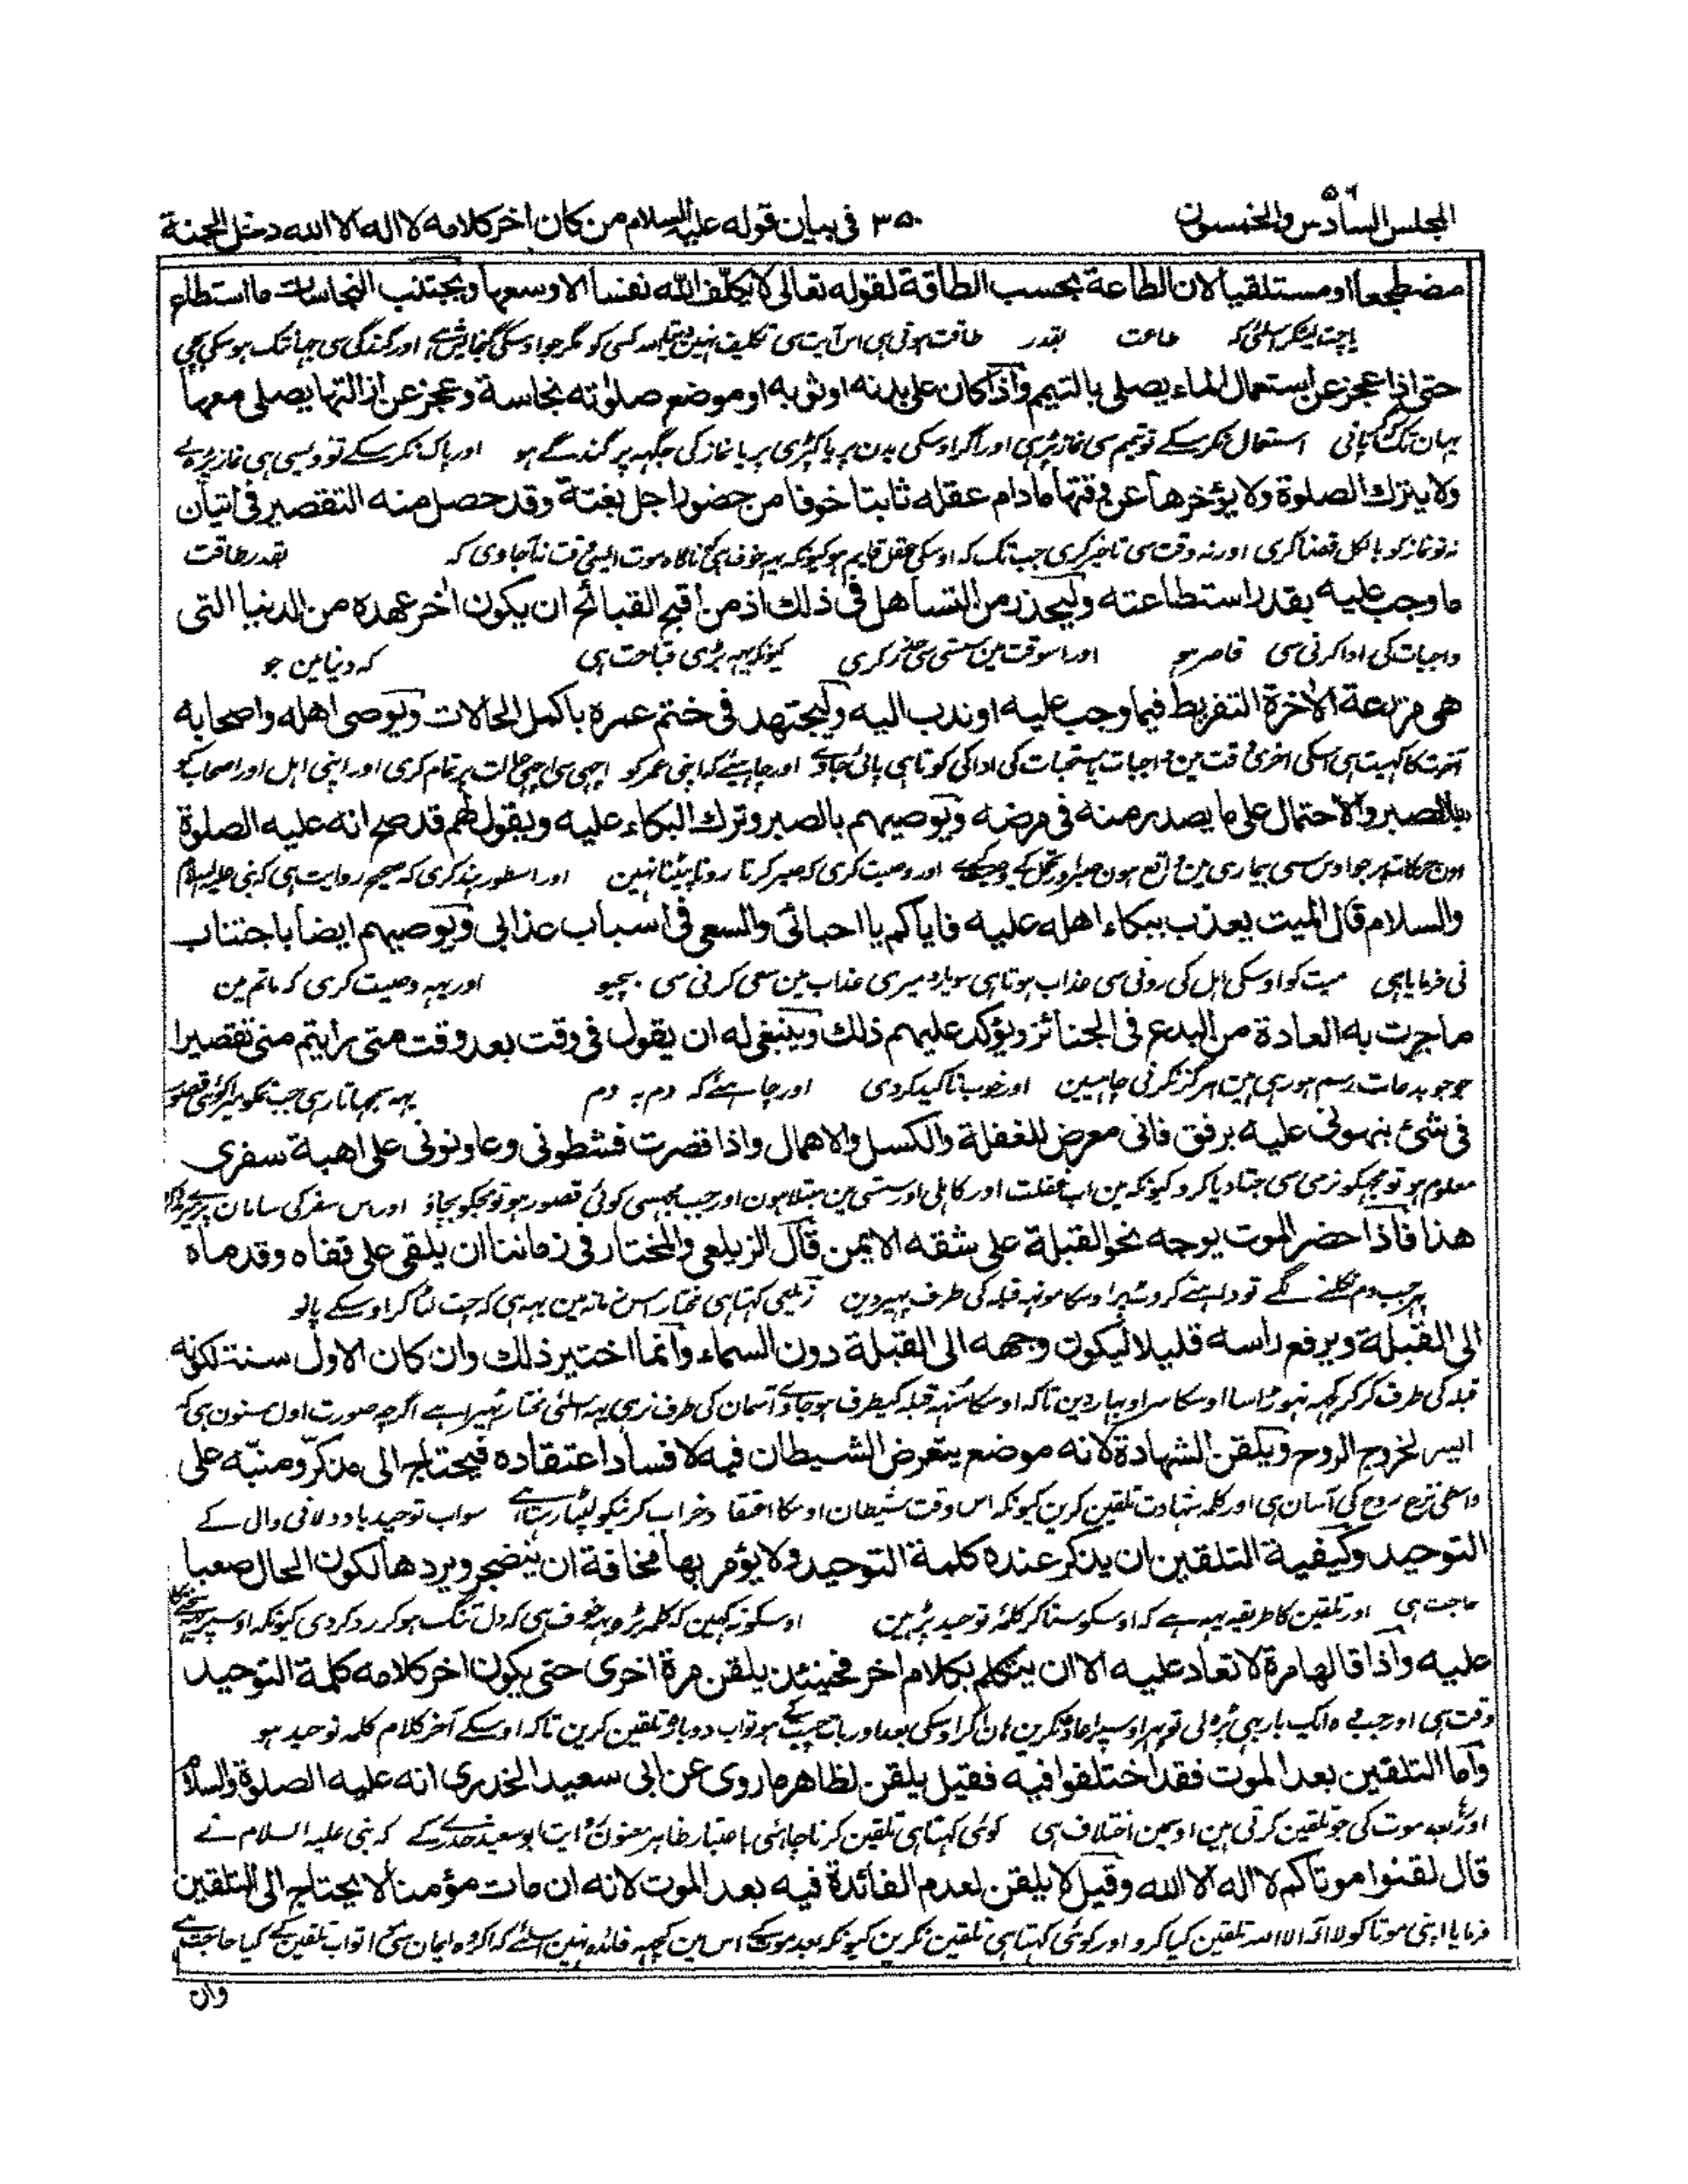 ٥٦
المجلس السادس والخمسون ٣٥٠ فی بیان قوله علیه السلام من کان اخر کلامه لا اله الا الله دخل الجنة
مضطجعا او مستلقیا لان الطاعة بحسب الطاقة لقوله تعالی لا یکلّف اللّٰه نفسا الا وسعها ویجتنب النجاسات ما استطاع
یا چت لیٹکر اسلئی کہ طاعت بقدر طاقت ہوتی ہی اس آیت سی تکلیف نہین دیتا اللہ کسی کو مگر جو اوسکی گنجایش ہے اور گندگی سی جہانتک ہو سکی بچی
حتی اذا عجز عن استعمال الماء یصلی بالتیمم واذا کان علی بدنه او ثوبه او موضع صلوٰته نجاسة وعجز عن ازالتها یصلی معها
یہان تک کہ پانی استعمال نکر سکے تو تیمم سی نماز پڑہی اور اگر اوسکی بدن پر یا کپڑی پر یا نماز کی جگہہ پر گندگے ہو اور پاک نکر سکے تو ویسی ہی نماز پڑہ لے
ولا یترك الصلوة ولا یؤخرها عن وقتها ما دام عقله ثابتا خوفا من حضور اجل بغتة وقد حصل منه التقصیر فی اتیان
نہ تو نماز کو بالکل قضا کری اور نہ وقت سی تاخیر کری جب تک کہ اوسکی عقل قایم ہو کیونکہ یہہ خوف ہی کہ ناگاہ موت ایسی وقت نہ آجاوی کہ بقدر طاقت
ما وجب علیه بقدر استطاعته ولیحذر من التساهل فی ذلك اذ من اقبح القبائح ان یکون اخر عهده من الدنیا التی
واجبات کی ادا کرنی سی قاصر ہو اور اسوقت مین سستی سی حذر کری کیونکہ یہہ بڑی قباحت ہی کہ دنیا مین جو
هی مزرعة الاٰخرة التفریط فیما وجب علیه او ندب الیه ولیجتهد فی ختم عمره باکمل الحالات ویوصی اهله واصحابه
آخرت کا کہیت ہی اسکی آخری وقت مین واجبات یا مستحبات کی ادا کی کوتاہی پائی جاوے اور چاہئے کہ اپنی عمر کو اچہی سی اچہی حالت پر تمام کری اور اپنی اہل اور اصحاب کو
بالصبر والاحتمال علی ما یصدر منه فی مرضه ویوصیهم بالصبر وترك البکاء علیه ویقول لهم قد صح انه علیه الصلوة
اون حرکات پر جو اوس سی بیماری مین واقع ہون صبر اور تحمل کی وصیت کرے اور وصیت کری کہ صبر کرنا رونا پیٹنا نہین اور اسطور پند کری کہ صحیح روایت ہی کہ نبی علیہ السلام
والسلام قال المیت یعذب ببکاء اهله علیه فایاکم یا احبائی والسعی فی اسباب عذابی ویوصیهم ایضا باجتناب
نی فرمایا ہی میت کو اوسکی اہل کی رونی سی عذاب ہوتا ہی سو یارو میری عذاب مین سعی کرنی سی بچیو اور یہہ وصیت کری کہ ماتم مین
ما جرت به العادة من البدع فی الجنائز ویؤکد علیهم ذلك وینبغی له ان یقول فی وقت بعد وقت متی رأیتم منی تقصیرا
جو جو بدعات رسم ہو رہی ہین ہرگز نکرنی چاہیین اور خوب تاکید کردی اور چاہئے کہ دم بہ دم یہہ سمجہاتا رہی جب تمکو میرا کوئی قصور
فی شئ نبهونی علیه برفق فانی معرض للغفلة والکسل والاهمال واذا قصرت فنشطونی وعاونونی علی اهبة سفری
معلوم ہو تو مجہکو نرمی سی جتا دیا کرو کیونکہ مین اب غفلت اور کاہلی اور سستی مین مبتلا ہون اور جب مجہسی کوئی قصور ہو تو مجکو بچاؤ اور اس سفر کی سامان پر
هذا فاذا حضر الموت یوجه نحو القبلة علی شقه الایمن قال الزیلعی والمختار فی زماننا ان یلقی علی قفاه وقدماه
پہر جب دم نکلنے لگے تو داہنے کروٹ پر اوسکا مونہہ قبلہ کی طرف پہیر دین زیلعی کہتا ہی مختار اس زمانہ مین یہہ ہی کہ چت لٹا کر اوسکے پانو
الی القبلة ویرفع راسه قلیلا لیکون وجهه الی القبلة دون السماء وانما اختیر ذلك وان کان الاول سنة لکونه
قبلہ کی طرف کر کر کچہہ تہوڑا سا اوسکا سر اوبہار دین تاکہ اوسکا منہہ قبلہ کیطرف ہو جاوے آسمان کی طرف نرہی یہہ اسلئی مختار ٹہیرا ہے اگرچہ صورت اول مسنون ہی کہ
ایسر لخروج الروح ویلقن الشهادة لانه موضع یتعرض الشیطان فیه لافساد اعتقاده فیحتاج الی مذکّر ومنبّه علی
واسطی نزع روح کی آسان ہی اور کلمہ شہادت تلقین کرین کیونکہ اس وقت شیطان اوسکا اعتقاد خراب کرنیکو لپٹا رہتا ہے سو اب توحید یاد دولانی والی کے
التوحید وکیفیة التلقین ان یذکر عنده کلمة التوحید ولا یؤمر بها مخافة ان یتضجر ویردها لکون الحال صعبا
حاجت ہی اور تلقین کا طریقہ یہہ ہے کہ اوسکو سنا کر کلمۂ توحید پڑہین اوسکو نہ کہین کہ کلمہ پڑہ یہہ خوف ہی کہ دل تنگ ہو کر رد کردی کیونکہ اوسپر
علیه واذا قالها مرة لا تعاد علیه الا ان یتکلم بکلام اخر فحینئذ یلقن مرة اخری حتی یکون اخر کلامه کلمة التوحید
وقت ہی اور جب وہ ایک بار بہی پڑہ لی تو پہر اوسپر اعادہ نکرین ہان اگر اوسکی بعد اور بات چیت کے ہو تو اب دوبارہ تلقین کرین تاکہ اوسکے آخر کلام کلمہ توحید ہو
واما التلقین بعد الموت فقد اختلفوا فیه فقیل یلقن لظاهر ما روی عن ابی سعید الخدری انه علیه الصلوة والسلام
اور بعد موت کی جو تلقین کرتی ہین اوسمین اختلاف ہی کوئی کہتا ہی تلقین کرنا چاہئی باعتبار ظاہر معنون روایت ابو سعید خدری کے کہ نبی علیہ السلام نے
قال لقنوا موتاکم لا اله الا الله وقیل لا یلقن لعدم الفائدة فیه بعد الموت لانه ان مات مؤمنا لا یحتاج الی التلقین
فرمایا اپنی موتا کو لا الہ الا اللہ تلقین کیا کرو اور کوئی کہتا ہی تلقین نکرین کیونکہ بعد موت کے اس مین کچہہ فائدہ نہین اسلئے کہ اگر وہ ایمان سی مرا تو اب تلقین کے کیا حاجت ہے
وان